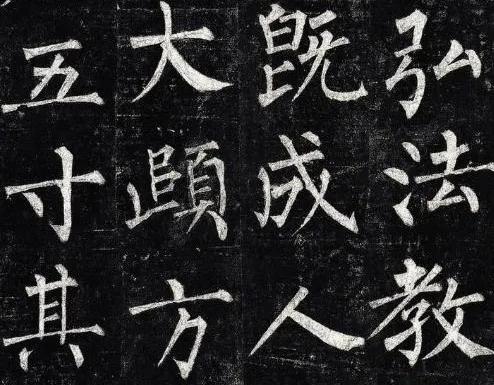 弘法教
既成人
大頤方
五寸其